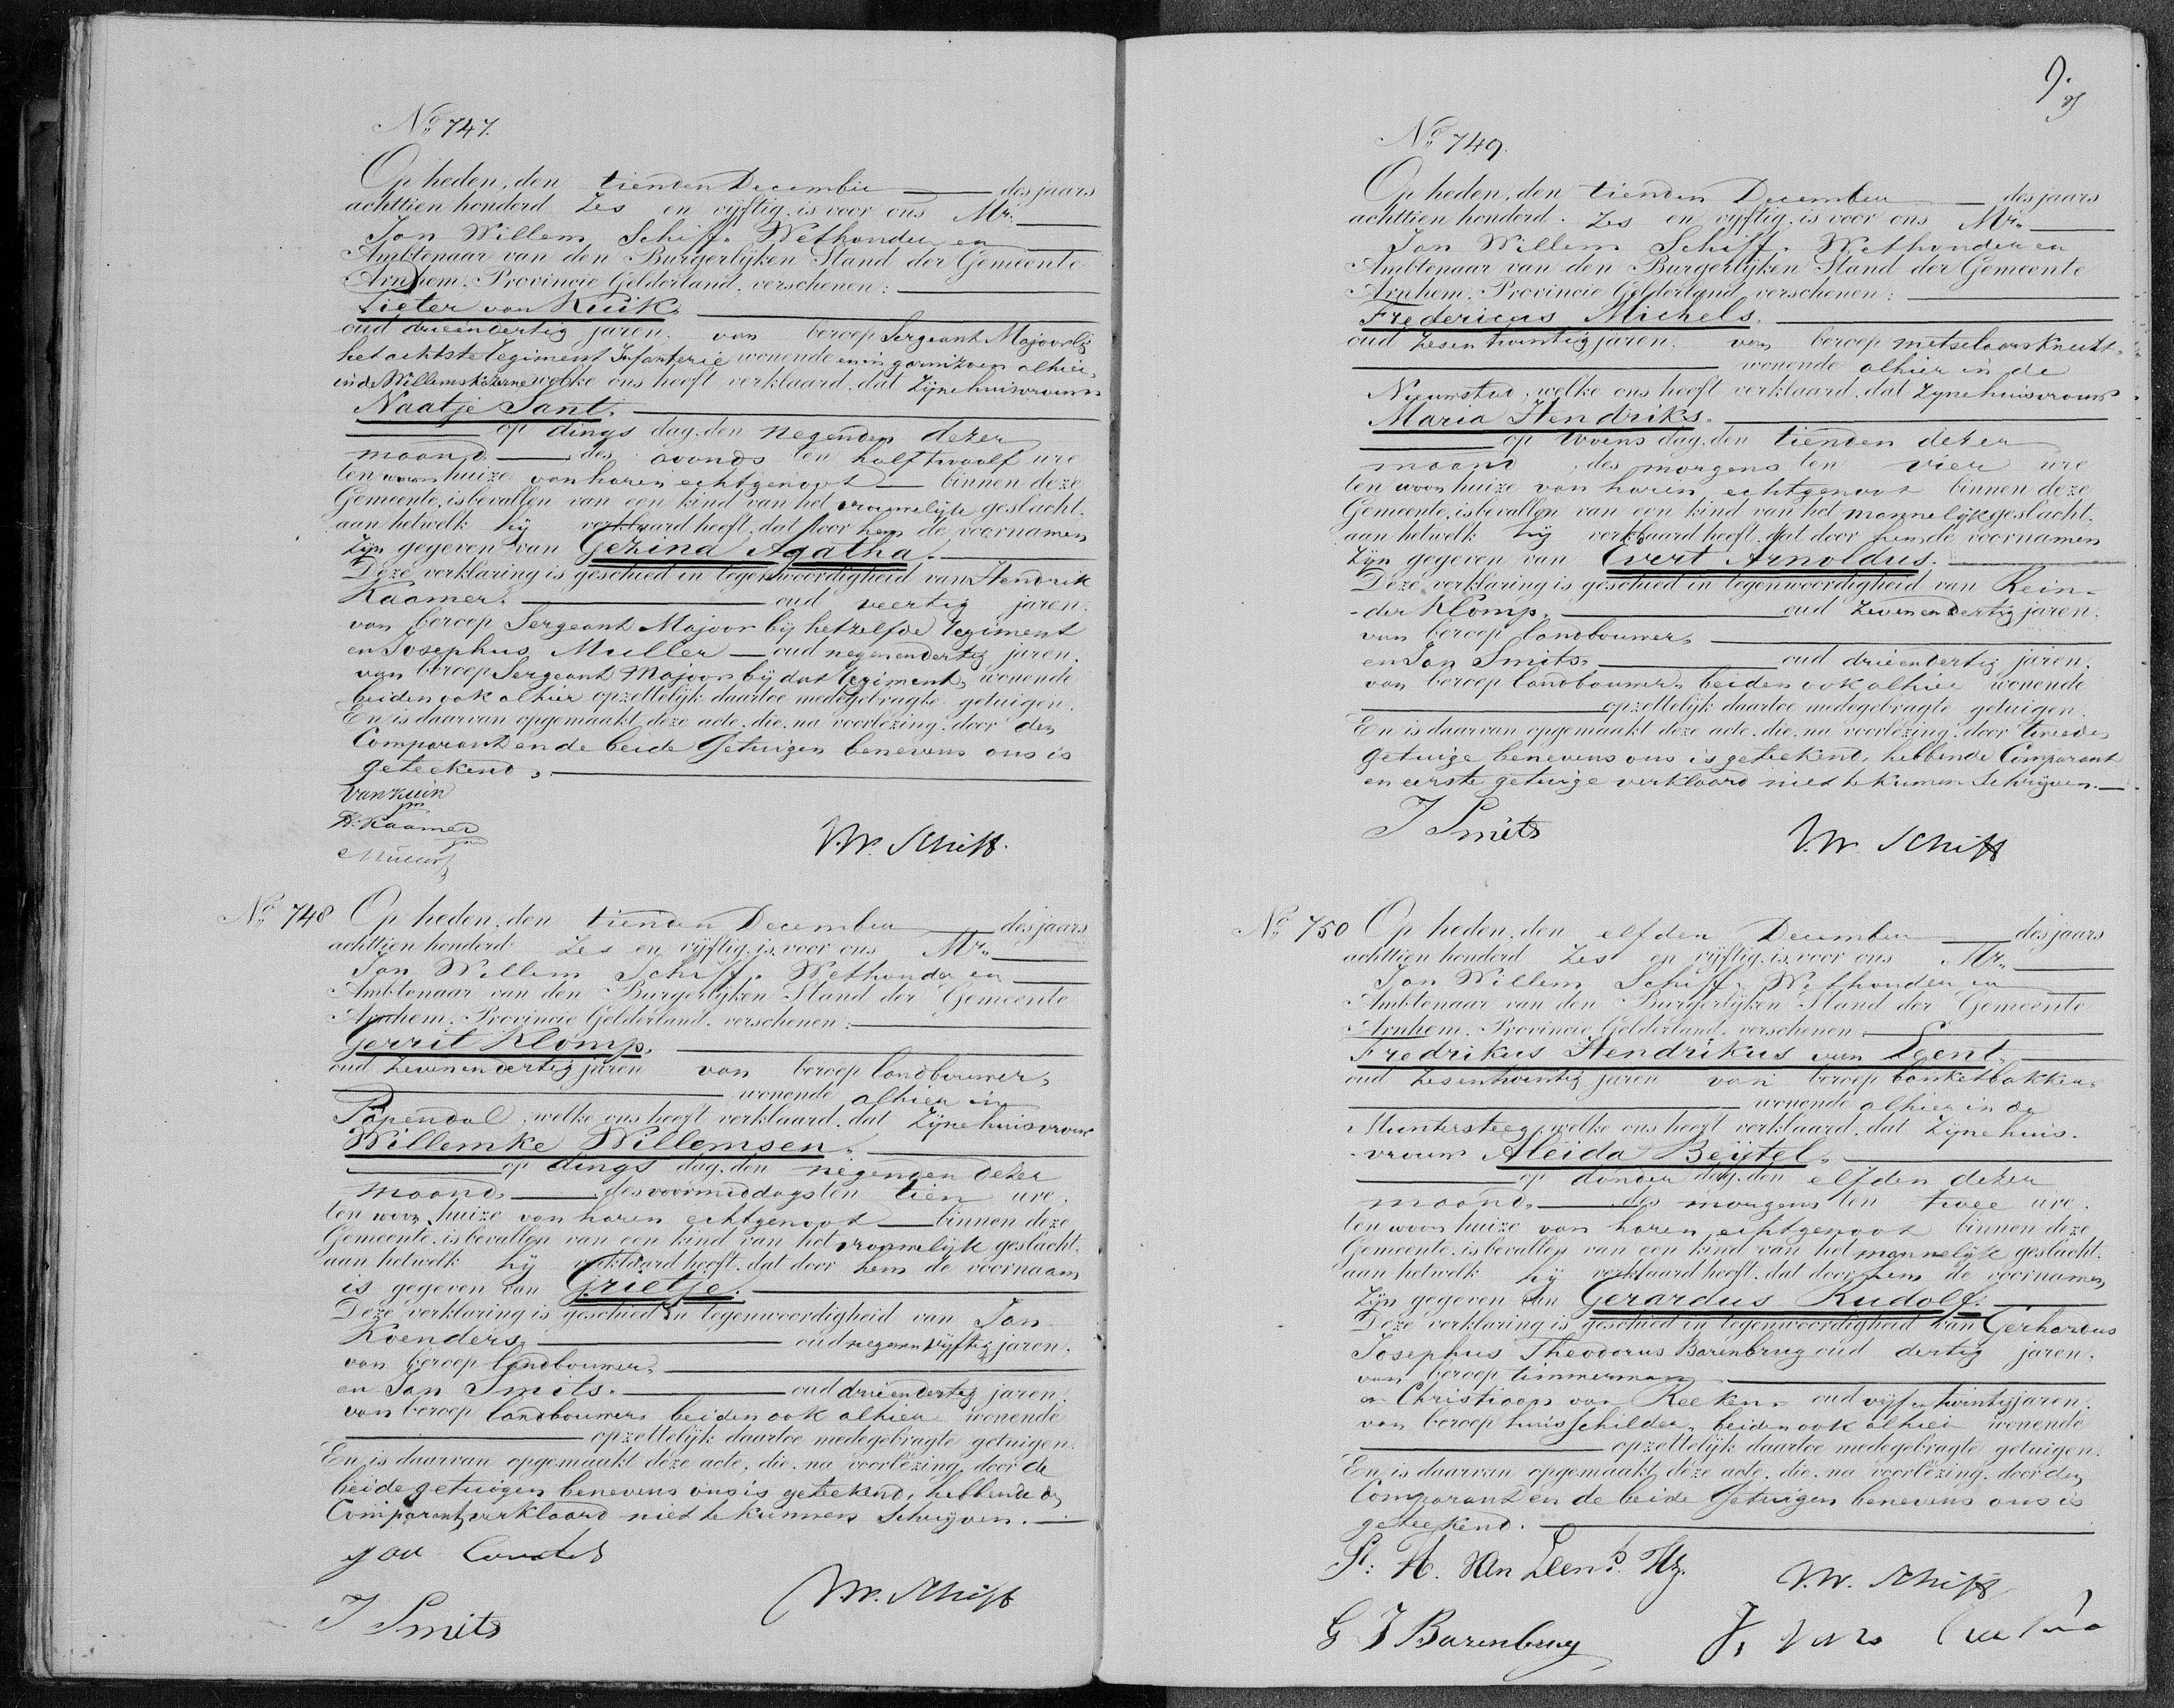 No 747.
Op heden, den tienden December des jaars
achttien honderd Zes en vijftig, is voor ons Mr.
Jan Willem Schiff, Wethouder en
Ambtenaar van den Burgerlijken Stand der Gemeente
Arnhem, Provincie Gelderland, verschenen:
Pieter van Kuik,
oud drieendertig jaren, van beroep Sergeant Majoor bij
het achtste regiment Infanterie wonende en in garnizoen alhier,
in de Willemskazerne welke ons heeft verklaard, dat Zijne huisvrouw
Naatje Sant,
op dings dag, den negenden dezer
maand des avonds ten half twaalf ure
ten woon huize van haren echtgenoot binnen deze
Gemeente, is bevallen van een kind van het vrouwelijk geslacht,
aan hetwelk hij verklaard heeft, dat door hem de voornamen
zijn gegeven van Gezina Agatha.
Deze verklaring is geschied in tegenwoordigheid van Hendrik
Kaamer, oud veertig jaren,
van beroep Sergeant Majoor bij hetzelfde regiment
en Josephus Muller oud negenendertig jaren,
van beroep Sergeant Majoor bij dat regiment, wonende
beiden ook alhier opzettelijk daartoe medegebragte getuigen.
En is daarvan opgemaakt deze acte, die, na voorlezing, door den
Comparant en de beide Getuigen benevens ons is
geteekend.
H. Kaamer
J.W. Schiff.
No 748 Op heden, den tienden December des jaars
achttien honderd Zes en vijftig, is voor ons Mr.
Jan Willem Schiff, Wethouder en
Ambtenaar van den Burgerlijken Stand der Gemeente
Arnhem, Provincie Gelderland, verschenen:
Gerrit Klomp,
oud zevenendertig jaren van beroep landbouwer,
wonende alhier in
Papendal, welke ons heeft verklaard, dat Zijne huisvrouw
Willemke Willemsen,
op dings dag, den negenden dezer
maand, des voormiddags ten tien ure,
ten woon huize van haren echtgenoot binnen deze
Gemeente, is bevallen van een kind van het vrouwelijk geslacht,
aan hetwelk hij verklaard heeft, dat door hem de voornaam
is gegeven van Grietje.
Deze verklaring is geschied in tegenwoordigheid van Jan
Koenders, oud negenenvijftig jaren,
van beroep landbouwer,
en Jan Smits, oud drieendertig jaren,
van beroep landbouwer beiden ook alhier wonende
opzettelijk daartoe medegebragte getuigen.
En is daarvan opgemaakt deze acte, die, na voorlezing, door de
beide getuigen benevens ons is geteekend, hebbende de
Comparant verklaard niet te kunnen Schrijven.
J Smits
J.W. Schiff
No 749.
Op heden, den tienden December des jaars
achttien honderd Zes en vijftig, is voor ons Mr.
Jan Willem Schiff, Wethouder en
Ambtenaar van den Burgerlijken Stand der Gemeente
Arnhem, Provincie Gelderland, verschenen:
Fredericus Michels,
oud zesentwintig jaren, van beroep metselaarsknecht,
wonende alhier in de
Nieuwstad, welke ons heeft verklaard, dat zijne huisvrouw
Maria Hendriks,
op woens dag, den tienden dezer
maand, des morgens ten vier ure
ten woon huize van haren echtgenoot binnen deze
Gemeente, is bevallen van een kind van het mannelijk geslacht,
aan hetwelk hij verklaard heeft, dat door hem de voornamen
zijn gegeven van Evert Arnoldus.
Deze verklaring is geschied in tegenwoordigheid van Rein-
-der Klomp, oud zevenendertig jaren,
van beroep landbouwer,
en Jan Smits, oud drieendertig jaren,
van beroep landbouwer, beiden ook alhier wonende
opzettelijk daartoe medegebragte getuigen.
En is daarvan opgemaakt deze acte, die, na voorlezing, door tweede
getuige benevens ons is geteekend, hebbende Comparant
en eerste getuige verklaard niet te kunnen Schrijven.
J Smits
J.W. Schiff
No 750 Op heden, den elfden December des jaars
achttien honderd Zes en vijftig, is voor ons Mr.
Jan Willem Schiff, Wethouder en
Ambtenaar van den Burgerlijken Stand der Gemeente
Arnhem, Provincie Gelderland, verschenen:
Fredrikus Hendrikus van Leent,
oud zesentwintig jaren van beroep banketbakker,
wonende alhier in de
Muntersteeg, welke ons heeft verklaard, dat zijne huis-
-vrouw Aleida Beijtel,
op donder dag, den elfden dezer
maand, des morgens ten twee ure,
ten woon huize van haren echtgenoot binnen deze
Gemeente, is bevallen van een kind van het mannelijk geslacht,
aan hetwelk hij verklaard heeft, dat door hem de voornamen
zijn gegeven van Gerardus Rudolf.
Deze verklaring is geschied in tegenwoordigheid van Gerhardus
Josephus Theodorus Barenbrug oud dertig jaren,
van beroep timmerman
en Christiaan van Reeken, oud vijfentwintig jaren,
van beroep huisschilder, beiden ook alhier wonende
opzettelijk daartoe medegebragte getuigen.
En is daarvan opgemaakt deze acte, die, na voorlezing, door den
Comparant en de beide Getuigen benevens ons is
geteekend.
H. van Leent Hz.
J.W. Schiff
G J Barenbrug